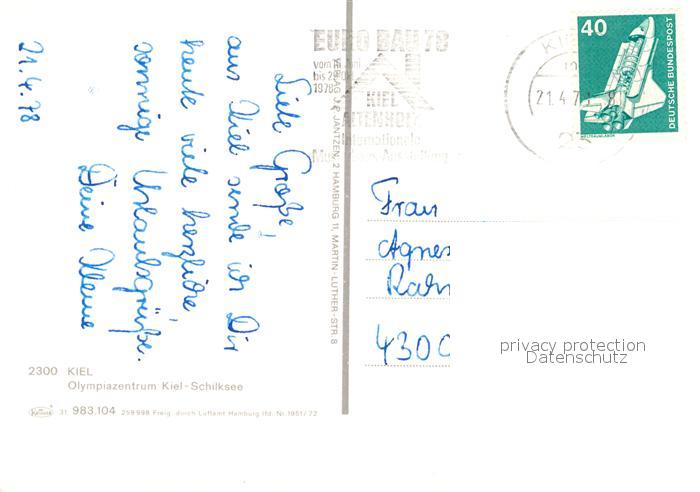 21.4.78
Liebe Große!
aus Kiel sende ich Dir
heute viele herzliche,
sonnige Urlaubsgrüße.
Deine Kleine
2300 KIEL
Olympiazentrum Kiel-Schilksee
Krüger 31. 983.104 259998 Freig. durch Luftamt Hamburg lfd. Nr. 1951/72
JANTZEN, 2 HAMBURG 11, MARTIN-LUTHER-STR. 8
EURO BAU 78
vom
bis
1978
KIEL
ALTENHOLZ
Internationale
KI
21.4.7
40
DEUTSCHE BUNDESPOST
WELTRAUMLABOR
Frau
Agnes
4300
privacy protection
Datenschutz